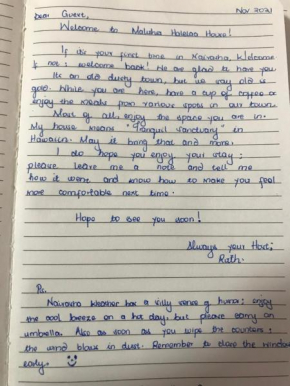 Dear Guest,
Nov 2021
Welcome to Maluhia Holelon House!
If it's your first time in Naivasha, Welcome
if not: welcome back! We are glad to have you.
Its an old dusty town, but we say old is
gold. While you are here, have a cup of coffee or
enjoy the meals from various spots in our town.
Most of all, enjoy the space you are in.
My house means "Tranquil Sanctuary" in
Hawaiian. May it bring that and more.
I do hope you enjoy your stay;
please leave me a note and tell me
how it went and know how to make you feel
more comfortable next time.
Hope to see you soon!
Always your Host,
Ruth.
Ps.
Naivasha Weather has a silly sense of humor: enjoy
the cool breeze on a hot day, but please carry an
umbrella. Also as soon as you wipe the counters:
the wind blows in dust. Remember to close the window
early.